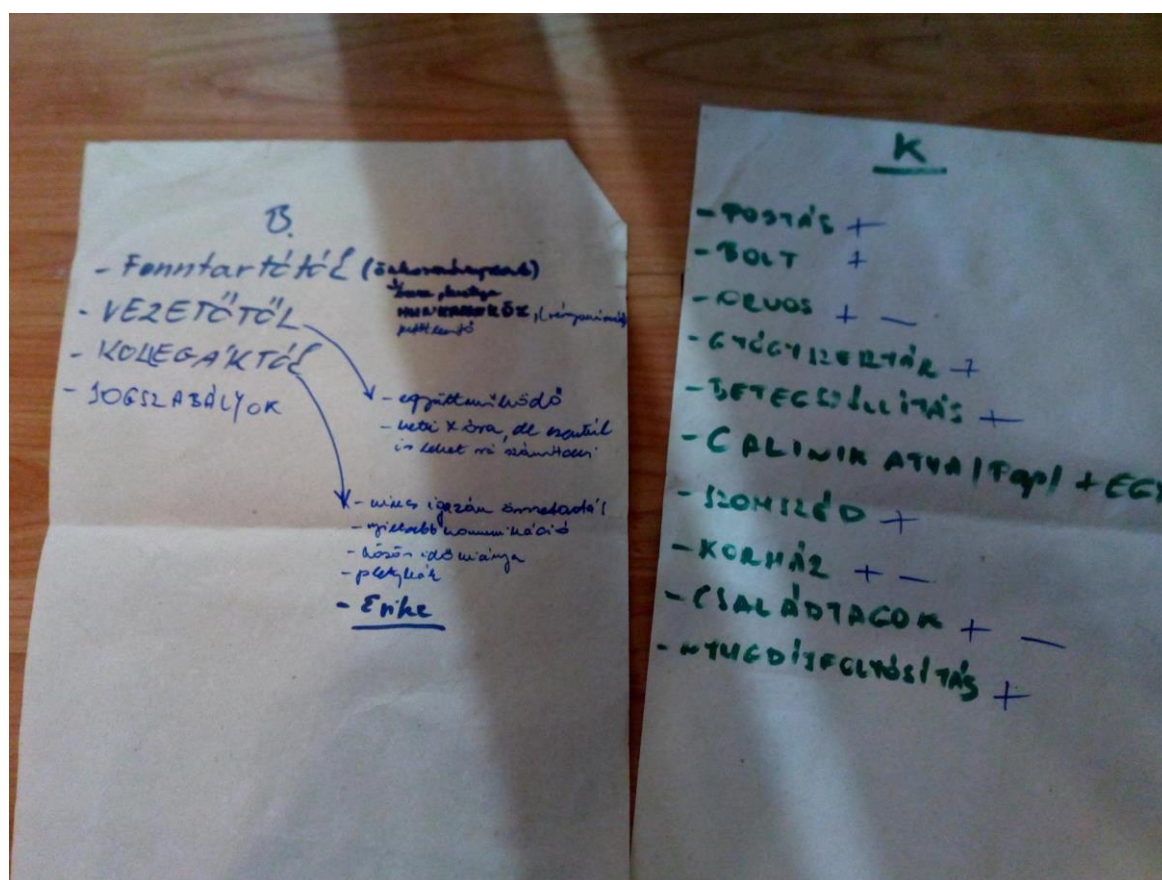 B.
- Fenntartótól (önkormányzat)
MUNKAKÖRÖK,
- VEZETŐTŐL
- KOLLEGÁKTÓL
- JOGSZABÁLYOK
- együttműködő
- heti X óra, de ezentúl
is lehet rá számítani
- nincs igazán összetartás
- kommunikáció
- közös idő hiánya
- pletykák
- Erike
K
- POSTÁS +
- BOLT +
- ORVOS + -
- GYÓGYSZERTÁR +
- BETEGSZÁLLÍTÁS +
- CALINIK ATYA (Fap) + EGY
- SZOMSZÉD +
- KORHÁZ + -
- CSALÁDTAGOK + -
- NYUGDÍJFOLYÓSÍTÁS +